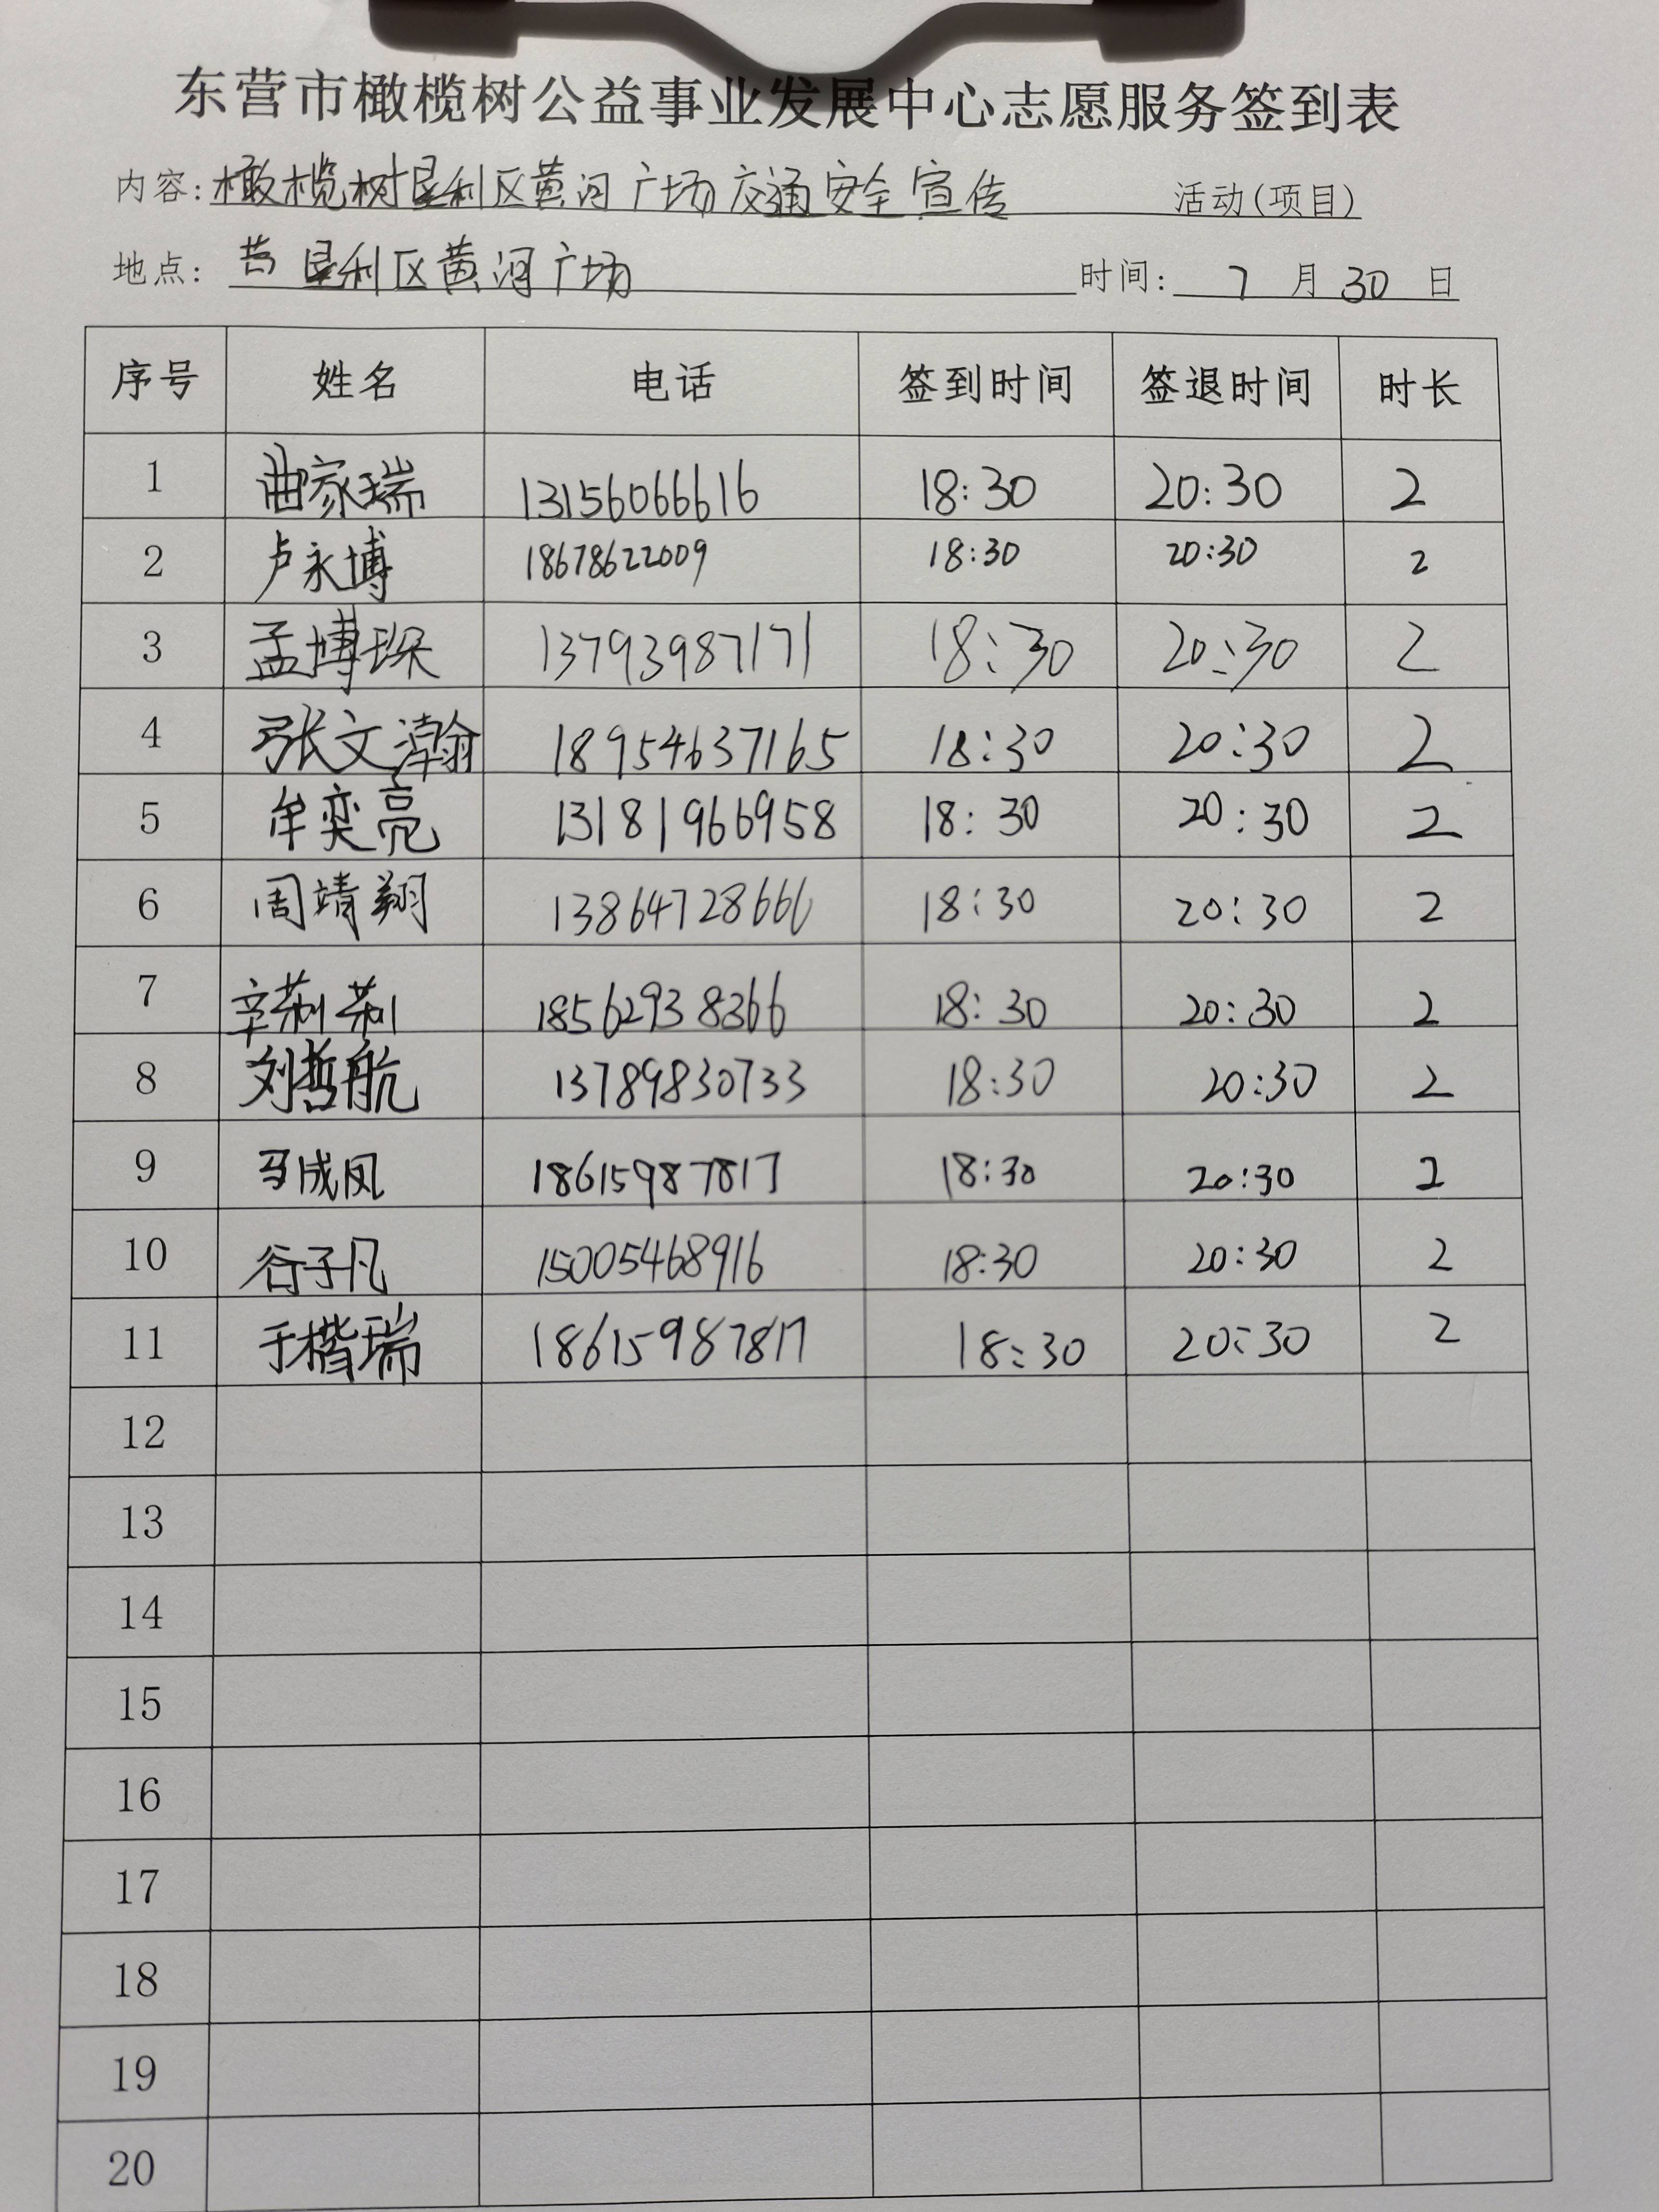 东营市橄榄树公益事业发展中心志愿服务签到表
内容: 橄榄树垦利区黄河广场交通安全宣传 活动(项目)
地点: 垦利区黄河广场 时间: 7 月 30 日
序号 姓名 电话 签到时间 签退时间 时长
1 曲家瑞 13156066616 18:30 20:30 2
2 卢永博 18678622009 18:30 20:30 2
3 孟博琛 13793987171 18:30 20:30 2
4 张文瀚 18954637165 18:30 20:30 2
5 牟奕亮 13181966958 18:30 20:30 2
6 周靖翔 13864728666 18:30 20:30 2
7 辛荆荆 18562938366 18:30 20:30 2
8 刘哲航 13789830733 18:30 20:30 2
9 马成凤 18615987817 18:30 20:30 2
10 谷子凡 15005468916 18:30 20:30 2
11 于楷瑞 18615987817 18:30 20:30 2
12
13
14
15
16
17
18
19
20